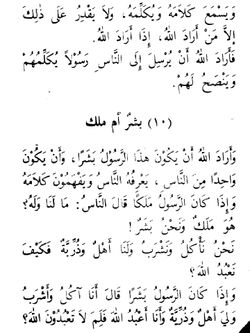 وَيَسْمَعَ كَلَامَهُ وَيُكَلِّمَهُ، وَلَا يَقْدِرُ عَلَى ذٰلِكَ
إِلَّا مَنْ أَرَادَ اللهُ، إِذَا أَرَادَ اللهُ.
فَأَرَادَ اللهُ أَنْ يُرْسِلَ إِلَى النَّاسِ رَسُولًا يُكَلِّمُهُمْ
وَيَنْصَحُ لَهُمْ.
(١٠) بشرٌ أم ملك
وَأَرَادَ اللهُ أَنْ يَكُونَ هٰذَا الرَّسُولُ بَشَرًا، وَأَنْ يَكُونَ
وَاحِدًا مِنَ النَّاسِ، يَعْرِفُهُ النَّاسُ وَيَفْهَمُونَ كَلَامَهُ
وَإِذَا كَانَ الرَّسُولُ مَلَكًا قَالَ النَّاسُ: مَا لَنَا وَلَهُ؟
هُوَ مَلَكٌ وَنَحْنُ بَشَرٌ!
نَحْنُ نَأْكُلُ وَنَشْرَبُ وَلَنَا أَهْلٌ وَذُرِّيَّةٌ فَكَيْفَ
نَعْبُدُ اللهَ؟
وَإِذَا كَانَ الرَّسُولُ بَشَرًا قَالَ أَنَا آكُلُ وَأَشْرَبُ
وَلِي أَهْلٌ وَذُرِّيَّةٌ وَأَنَا أَعْبُدُ اللهَ فَلِمَ لَا تَعْبُدُونَ اللهَ؟